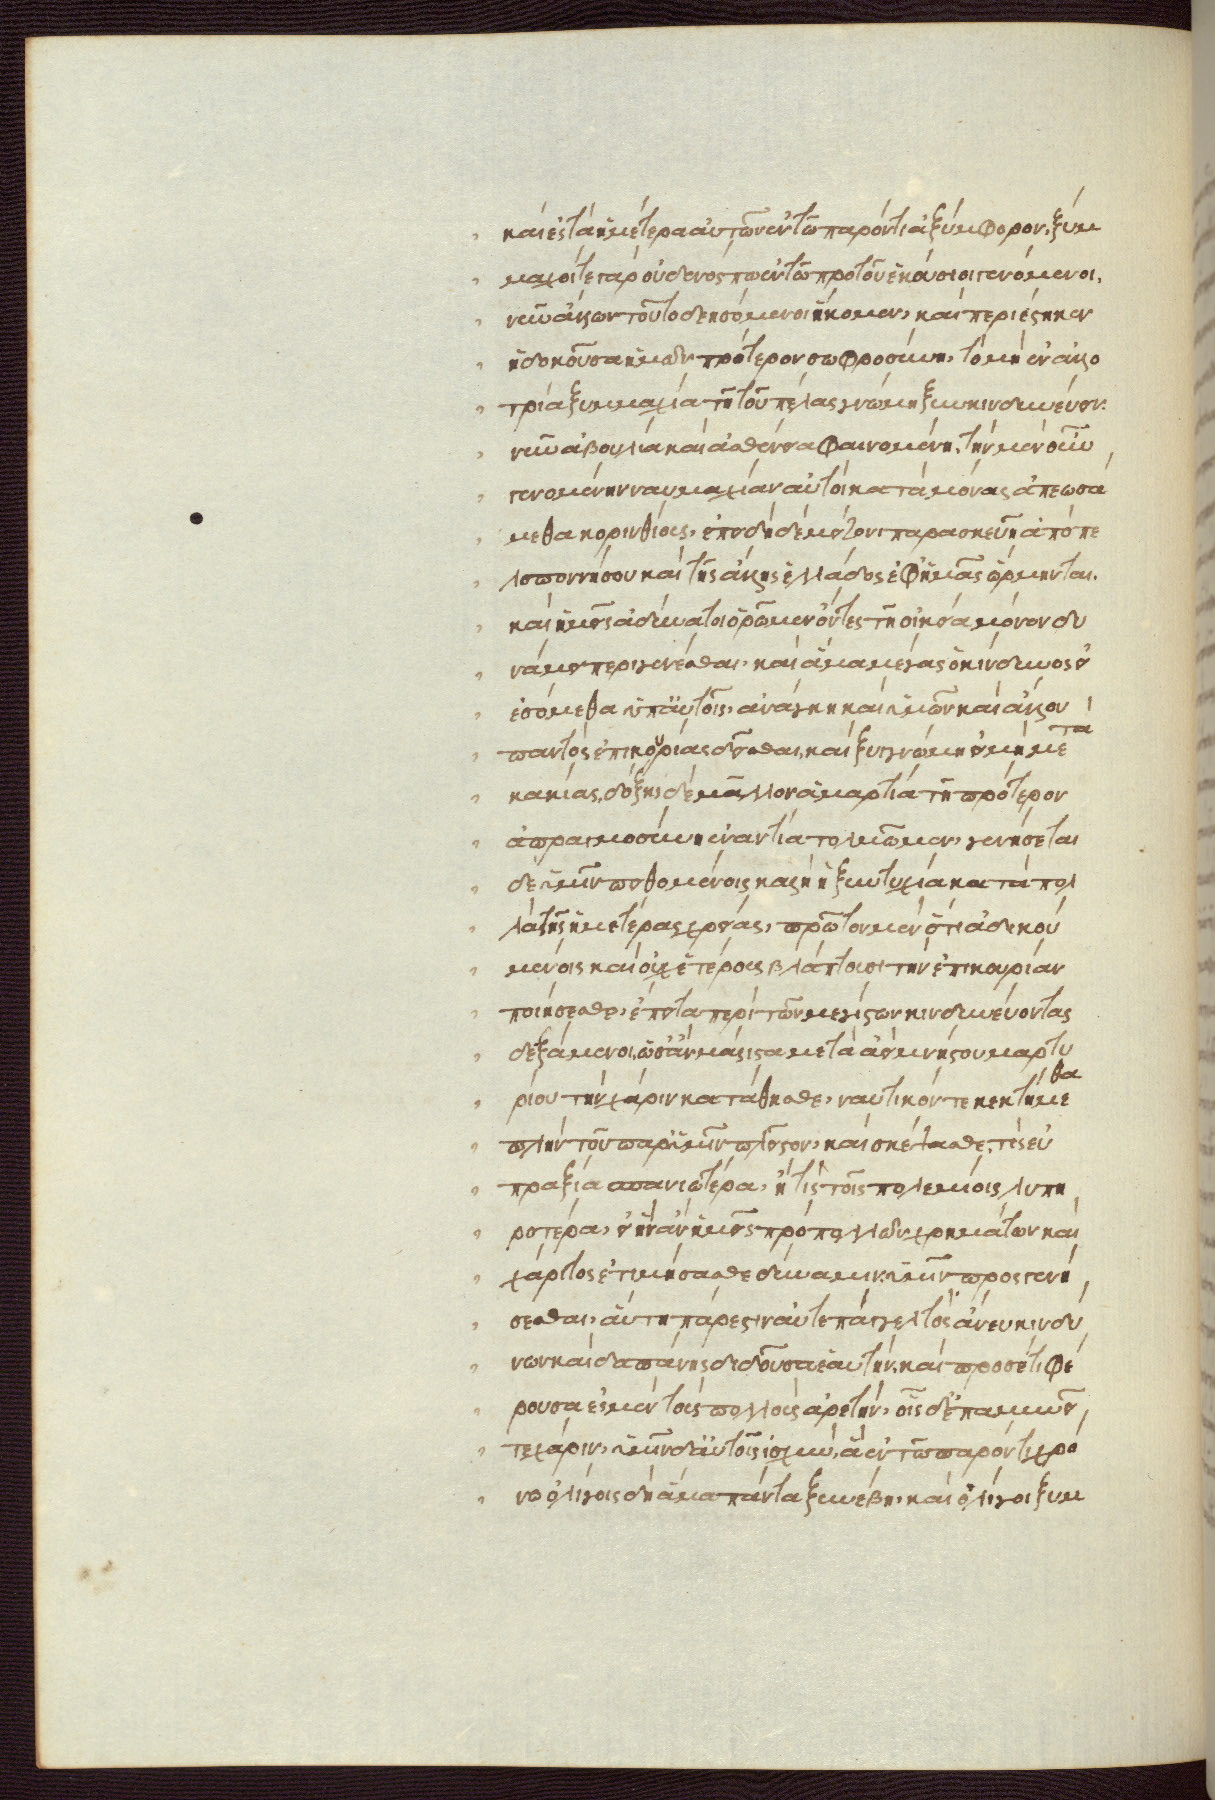 καὶ ἐς τὰ ἡμέτερα αὐτῶν ἐν τῶ παρόντι ἀξύμφορον. ξύμ
μαχοί τε γὰρ οὐδενός πω ἐν τῶ πρὸ τοῦ ἑκούσιοι γενόμενοι.
νῦν ἄλλων τοῦτο δεησόμενοι ἥκομεν, καὶ περιέστηκεν
ἡ δοκοῦσα ἡμῶν πρότερον σωφροσύνη, τὸ μὴ ἐν ἀλλο
τρία ξυμμαχία τῆ τοῦ πέλας γνώμη ξυγκινδυνεύειν.
νῦν ἀβουλία καὶ ἀσθένεια φαινομένη. τὴν μὲν οὖν
γενομένην ναυμαχίαν αὐτοὶ κατὰ μόνας ἀπεωσά
μεθα κορινθίους, ἐπειδὴ δὲ μείζονι παρασκευῆ ἀπὸ πε
λοποννήσου καὶ τῆς ἄλλης ἑλλάδος ἐφ ἡμᾶς ὥρμηνται.
καὶ ἡμεῖς ἀδύνατοι ὁρῶμεν ὄντες τῆ οἰκεία μόνον δυ
νάμει περιγενέσθαι, καὶ ἅμα μέγας ὁ κίνδυνος εἰ
ἐσόμεθα ὑπ αὐτοῖς, ἀνάγκη καὶ ὑμῶν καὶ ἄλλου
παντὸς ἐπικουρίας δεῖσθαι, καὶ ξυγγνώμη εἰ μὴ μετὰ
κακίας, δόξης δὲ μᾶλλον ἁμαρτία τῆ πρότερον
ἀπραγμοσύνη ἐναντία τολμῶμεν, γενήσεται
δὲ ὑμῖν πειθομένοις καλὴ ἡ ξυντυχία κατὰ πολ
λὰ τῆς ἡμετέρας χρείας, πρῶτον μὲν ὅτι ἀδικου
μένοις καὶ οὐχ ἑτέρους βλάπτουσι τὴν ἐπικουρίαν
ποιήσεσθε, ἔπειτα περὶ τῶν μεγίστων κινδυνεύοντας
δεξάμενοι, ὡς ἂν μάλιστα μετὰ ἀειμνήστου μαρτυ
ρίου τὴν χάριν κατάθησθε, ναυτικόν τε κεκτήμεθα
πλὴν τοῦ παρ ὑμῖν πλεῖστον, καὶ σκέψασθε, τίς εὐ
πραξία σπανιωτέρα, ἢ τίς τοῖς πολεμίοις λυπη
ροτέρα, εἰ ἣν ἂν ἡμεῖς πρὸ πολλῶν χρημάτων καὶ
χάριτος ἐτιμήσασθε δύναμιν, ὑμῖν προσγενή
σεσθαι, αὕτη πάρεστιν αὐτεπάγγελτος ἄνευ κινδύ
νων καὶ δαπάνης διδοῦσα ἑαυτήν, καὶ προσέτι φέ
ρουσα ἐς μὲν τοὺς πολλοὺς ἀρετήν, οἷς δ ἐπαμυνεῖ
τε χάριν, ὑμῖν δ αὐτοῖς ἰσχύν, ἃ ἐν τῶ παρόντι χρό
νω ὀλίγοις δὴ ἅμα πάντα ξυνέβη, καὶ ὀλίγοι ξυμ